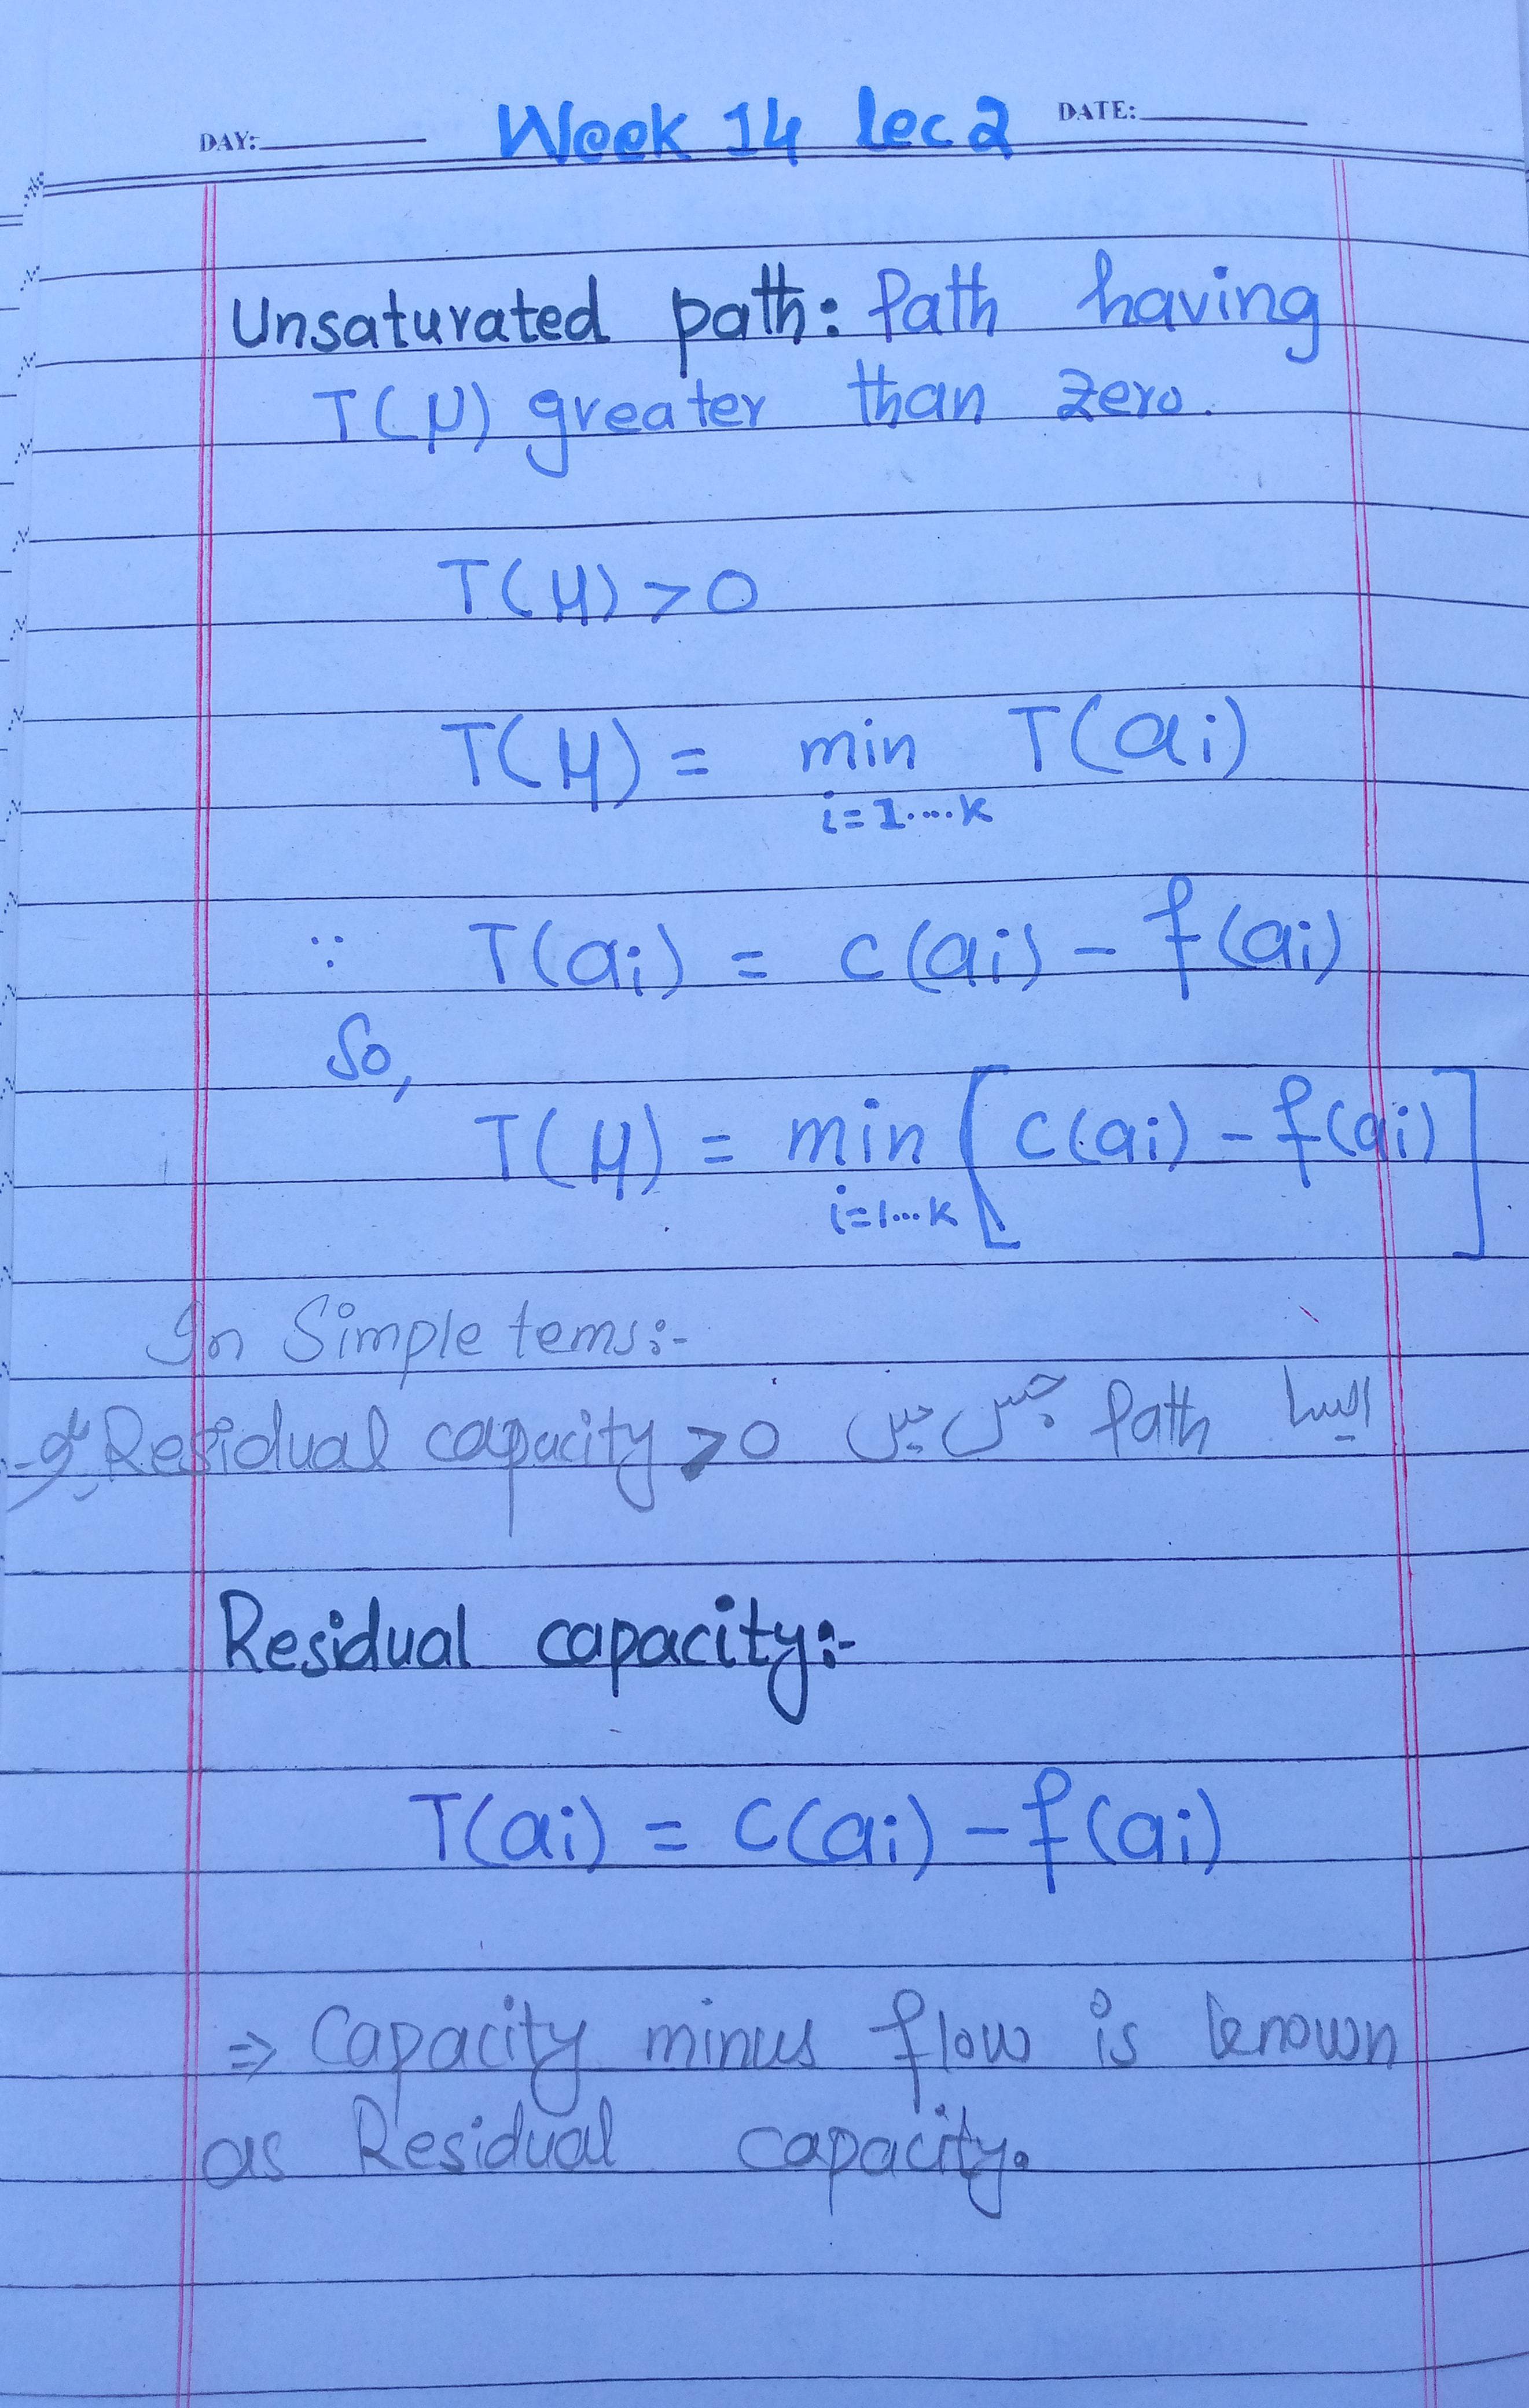 DAY: Week 14 lec 2 DATE:
Unsaturated path: Path having
T(μ) greater than zero.
T(μ) > 0
T(μ) = min T(ai)
i=1....k
∵ T(ai) = c(ai) - f(ai)
So,
T(μ) = min [c(ai) - f(ai)]
i=1...k
In Simple tems:-
ایسا Path جس میں Residual capacity > 0 ہو۔
Residual capacity:-
T(ai) = C(ai) - f(ai)
⇒ Capacity minus flow is known
as Residual capacity.